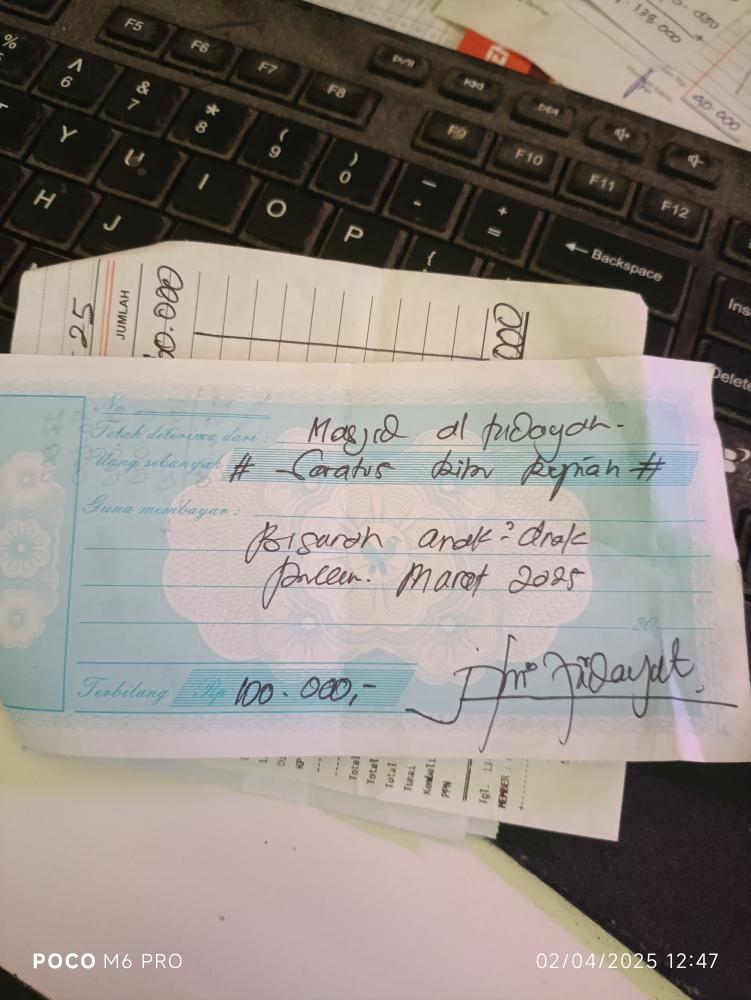 F5
F6
F7
F8
F9
F10
F11
F12
%
^
6
&
7
*
8
(
9
)
0
_
-
+
=
Backspace
Y
U
I
O
P
{
H
J
Ins
Delete
138.000
40 000
25
JUMLAH
000
No.
Telah diterima dari : Masjid al hidayah.
Uang sebanyak # Seratus ribu Rupiah #
Guna membayar :
Bisaroh anak²
bulan. Maret 2025
20
Terbilang Rp 100.000,-
Hidayat
Total
Total
Total
Tunai
Kembali
PPN
Tgl. 13
MEMBER :
POCO M6 PRO
02/04/2025 12:47